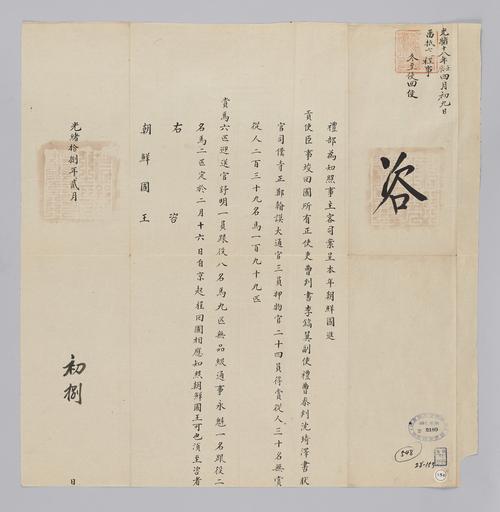 光緒十八年壬辰四月初九日
冬至使回便
咨
禮部為知照事主客司案呈本年朝鮮國進
貢使臣事竣回國所有正使吏曹判書李鎬翼副使禮曹參判沈琦澤書狀
官司僕寺正鄭翰謨大通官三員押物官二十四員得賞從人三十名無賞
從人二百三十九名馬一百九十九匹
賞馬六匹迎送官舒明一員跟役八名馬九匹無品級通事永魁一名跟役二
名馬二匹定於二月十六日自京起程回國相應知照朝鮮國王可也須至咨者
右咨
朝鮮國王
光緒拾捌年貳月
初捌
日
548